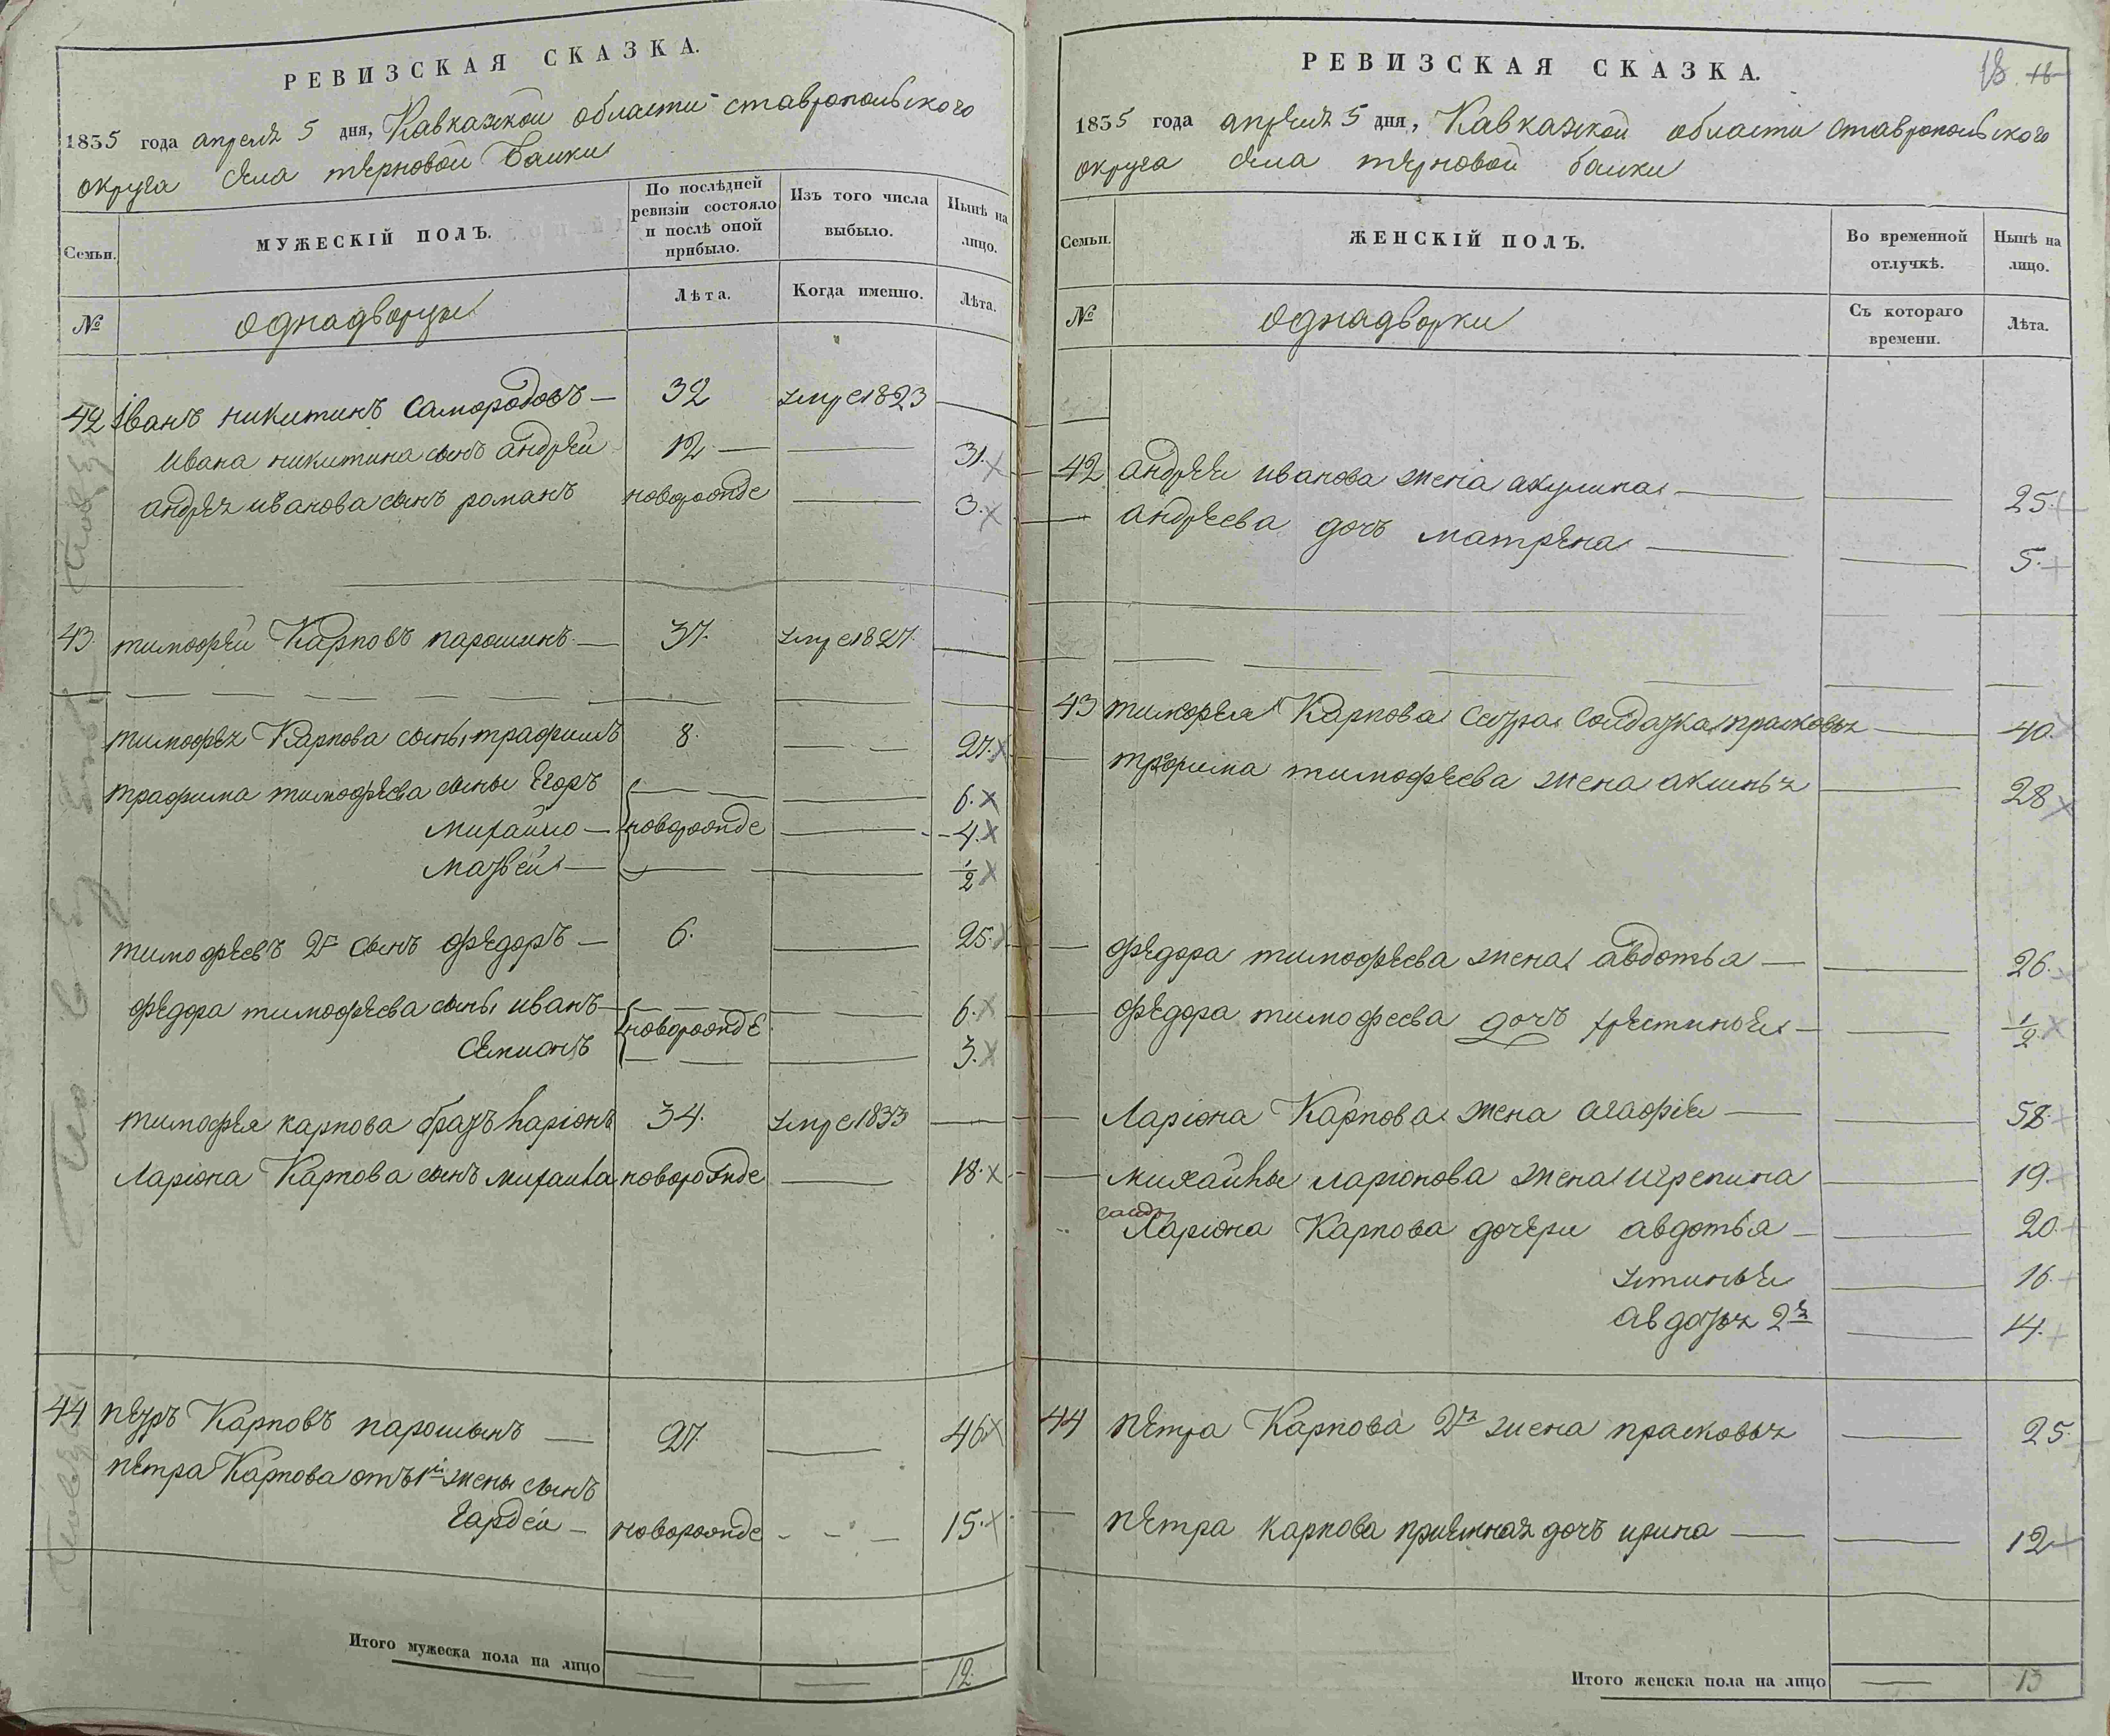 РЕВИЗСКАЯ СКАЗКА.
1835 года апреля 5 дня, Кавказкой области ставропольского
округа села терновой балки
Семьи.
МУЖЕСКІЙ ПОЛЪ.
По послѣдней ревизіи состояло и послѣ оной прибыло.
Изъ того числа выбыло.
Нынѣ на лицо.
№
однадворцы
Лѣта.
Когда именно.
Лѣта.
42 Іванъ никитинъ самородовъ — 32 умре 1823
Ивана никитина сынъ андрей 12 31.
андрея иванова сынъ романъ новорожде 3.
43. тимофей Карповъ парошинъ — 37. умре 1827.
тимофея Карпова сынъ, трафимъ 8. 27.
трафима тимофеева сыны Егоръ 6.
михайло — новорожде 4.
матвей — 1/2
тимофеевъ 2й сынъ федоръ — 6. 25.
федора тимофеева сынъ, иванъ 6.
семионъ новорожде 3.
тимофея карпова братъ ларіонъ 34. умре 1833
Ларіона Карпова сынъ михаила новорожде 18.
44 петръ Карповъ парошынъ — 27. 46
петра Карпова отъ 1й жены сынъ
Гардей — новорожде 15.
Итого мужеска пола на лицо 12.
РЕВИЗСКАЯ СКАЗКА.
18 18
1835 года апреля 5 дня, Кавказкой области ставропольского
округа села терновой балки
Семьи.
ЖЕНСКІЙ ПОЛЪ.
Во временной отлучкѣ.
Нынѣ на лицо.
№
однадворки
Съ котораго времени.
Лѣта.
42 андреи иванова жена акулина 25.
андреева дочъ матрена 5.
43 тимофея Карпова сестра солдатка прасковья 40.
трофима тимофеева жена аксинья 28
федора тимофеева жена авдотья — 26.
федора тимофеева дочъ хрестинья — 1/2
Ларіона Карпова жена агафія 58.
михайлы ларіонова жена 19.
Ларіона Карпова дочери авдотья — 20.
устинья 16.
авдотья 2я 14.
44 петра Карпова 2я жена прасковья 25.
петра карпова приемная дочъ ирина — 12
Итого женска пола на лицо 13